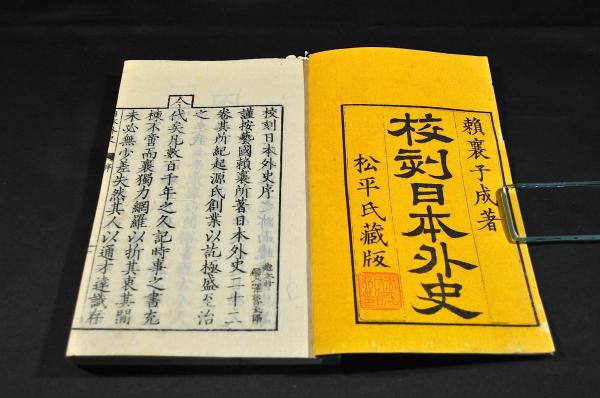 賴襄子成著
校刻日本外史
松平氏藏版
校刻日本外史序
謹按藝國賴襄所著日本外史二十二
卷其所紀起源氏創業以訖極盛至治
之
今代矣凡數百千年之久記時事之書充
棟不啻而襄獨力網羅以折其衷其間
未必無少差失然其人以通才達識